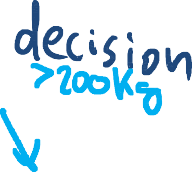 decision
>200Kg